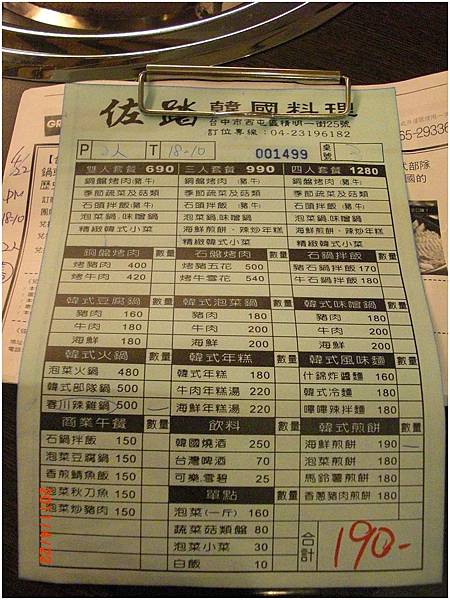 佐踏 韓國料理
台中市西屯區精明一街25號
訂位專線：04-23196182
P 2人 T 18-10 001499 桌號
雙人套餐 690 三人套餐 990 四人套餐 1280
銅盤烤肉(豬牛) 銅盤烤肉(豬牛) 銅盤烤肉(豬牛)
季節蔬菜及菇類 季節蔬菜及菇類 季節蔬菜及菇類
石頭拌飯(豬牛) 石頭拌飯(豬牛) 石頭拌飯(豬牛)
泡菜鍋.味噌鍋 泡菜鍋.味噌鍋 泡菜鍋.味噌鍋
精緻韓式小菜 海鮮煎餅、辣炒年糕 海鮮煎餅、辣炒年糕
精緻韓式小菜 精緻韓式小菜
銅盤烤肉 數量 石盤烤肉 數量 石鍋拌飯 數量
烤豬肉 400 烤豬五花 500 豬石鍋拌飯 170
烤牛肉 420 烤牛雪花 540 牛石鍋拌飯 180
韓式豆腐鍋 數量 韓式泡菜鍋 數量 韓式味噌鍋 數量
豬肉 160 豬肉 180 豬肉 180
牛肉 180 牛肉 200 牛肉 200
海鮮 180 海鮮 200 海鮮 200
韓式火鍋 數量 韓式年糕 數量 韓式風味麵 數量
泡菜火鍋 480 韓式年糕 180 什錦炸醬麵 160
韓式部隊鍋 500 牛肉年糕湯 220 韓式冷麵 180
春川辣雞鍋 500 海鮮年糕湯 220 嗶嗶辣拌麵 180
商業午餐 數量 飲料 數量 韓式煎餅 數量
石鍋拌飯 150 韓國燒酒 250 海鮮煎餅 190
泡菜豆腐鍋 150 台灣啤酒 70 泡菜煎餅 180
香煎鯖魚飯 150 可樂.雪碧 25 馬鈴薯煎餅 180
泡菜秋刀魚 150 單點 數量 香蔥豬肉煎餅 180
泡菜炒豬肉 150 泡菜(一斤) 160
蔬菜菇類盤 80
泡菜小菜 30
白飯 10
合計 190-